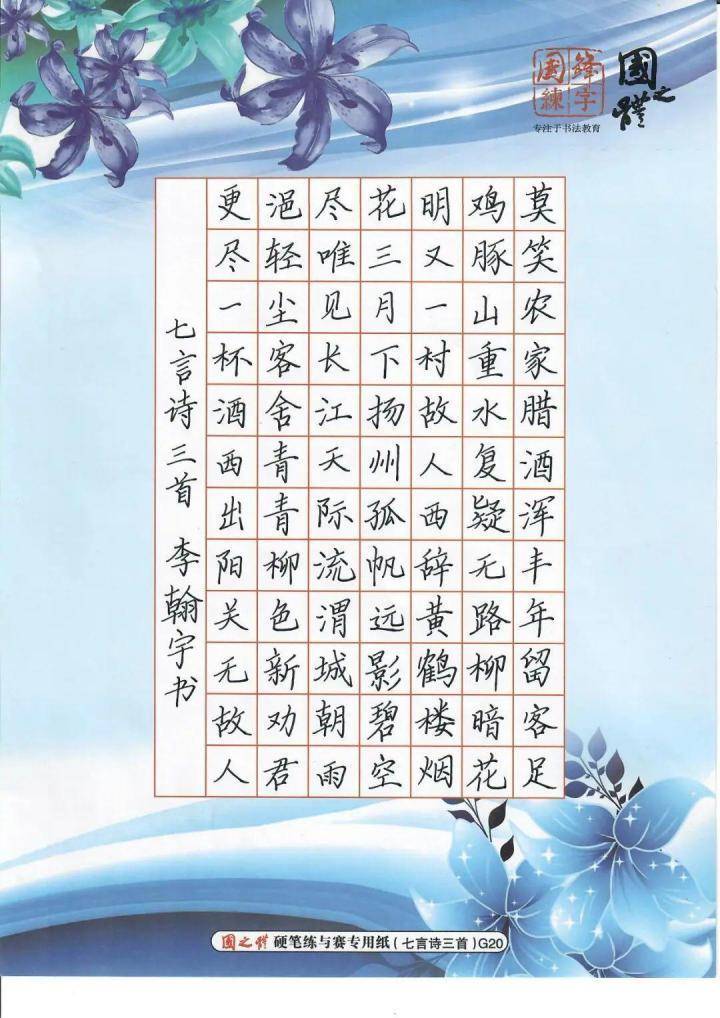 國鋒
練字
國之體
专注于书法教育
莫笑农家腊酒浑丰年留客足
鸡豚山重水复疑无路柳暗花
明又一村故人西辞黄鹤楼烟
花三月下扬州孤帆远影碧空
尽唯见长江天际流渭城朝雨
浥轻尘客舍青青柳色新劝君
更尽一杯酒西出阳关无故人
七言诗三首 李翰宇书
國之體 硬笔练与赛专用纸(七言诗三首)G20